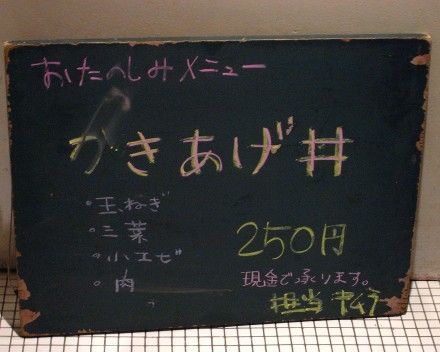 おたのしみメニュー
かきあげ丼
・玉ねぎ
・三葉
・小エビ
・肉
250円
現金で承ります。
担当 キムラ